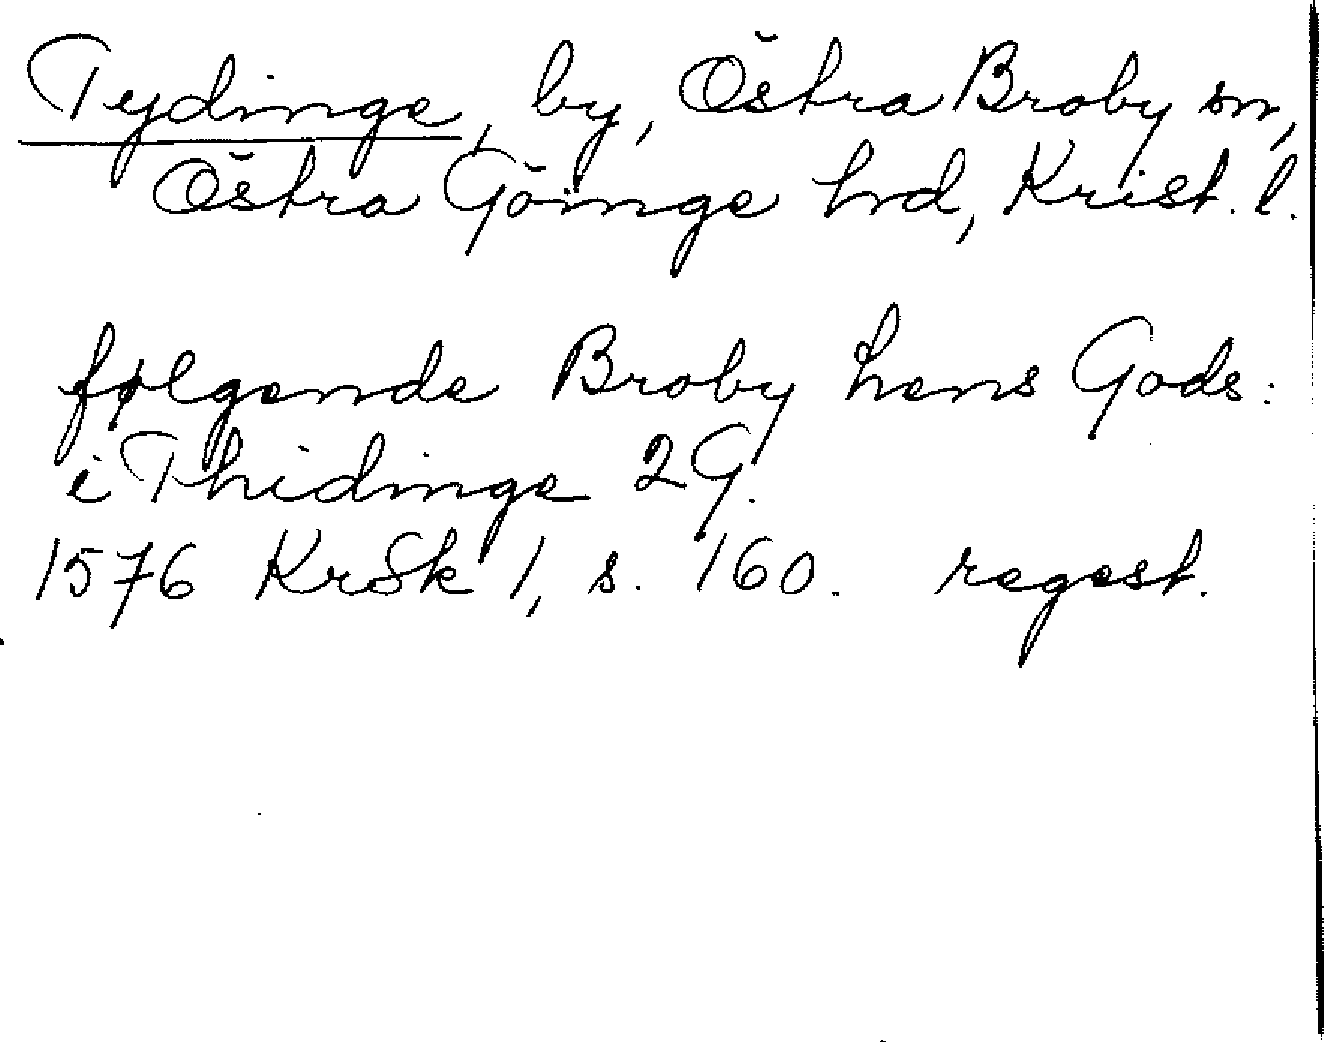 Tydinge, by, Östra Broby sn,
Östra Göinge hrd, Krist. l.
følgende Broby Lens Gods:
i Thidinge 2 G.
1576 KrSk 1, s. 160. regest.